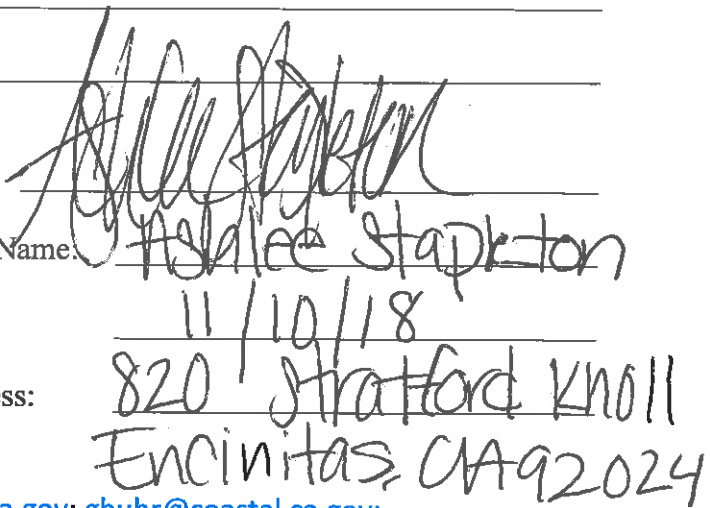 Name: Stapleton
11/10/18
ess: 820 Stratford Knoll
Encinitas, CA 92024
a.gov; gbuhr@coastal.ca.gov;